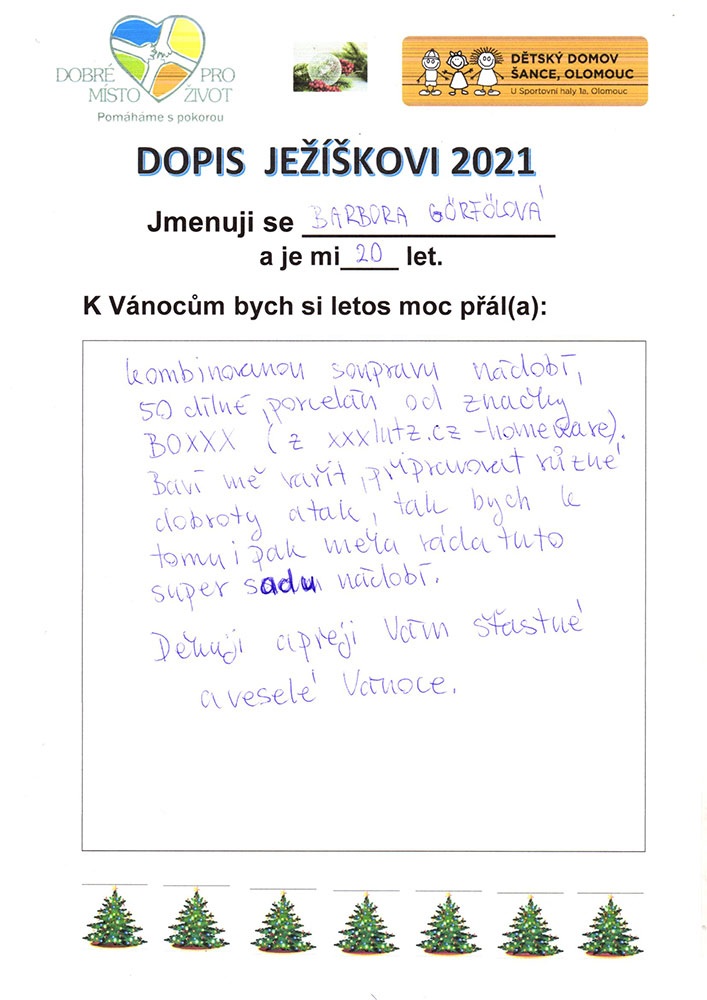 DOBRÉ PRO
MÍSTO ŽIVOT
Pomáháme s pokorou
DĚTSKÝ DOMOV
ŠANCE, OLOMOUC
U Sportovní haly 1a, Olomouc
DOPIS JEŽÍŠKOVI 2021
Jmenuji se BARBORA GÖRFÖLOVÁ
a je mi 20 let.
K Vánocům bych si letos moc přál(a):
kombinovanou soupravu nádobí,
50 dílné, porcelán od značky
BOXXX (z xxxlutz.cz - homeware).
Baví mě vařit, připravovat různé
dobroty atak, tak bych k
tomu i pak měla ráda tuto
super sadu nádobí.
Děkuji a přeji Vám šťastné
a veselé Vánoce.